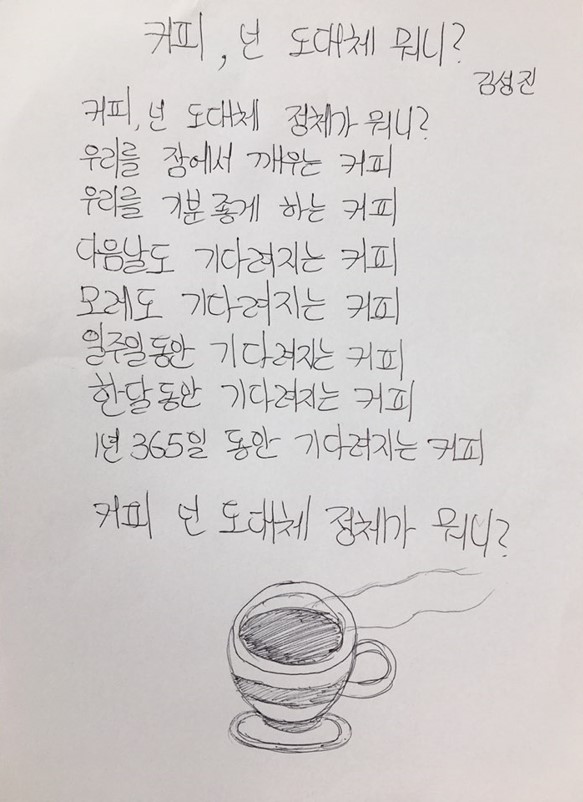 커피, 넌 도대체 뭐니?
김성진
커피, 넌 도대체 정체가 뭐니?
우리를 잠에서 깨우는 커피
우리를 기분 좋게 하는 커피
다음날도 기다려지는 커피
모레도 기다려지는 커피
일주일 동안 기다려지는 커피
한달 동안 기다려지는 커피
1년 365일 동안 기다려지는 커피
커피 넌 도대체 정체가 뭐니?